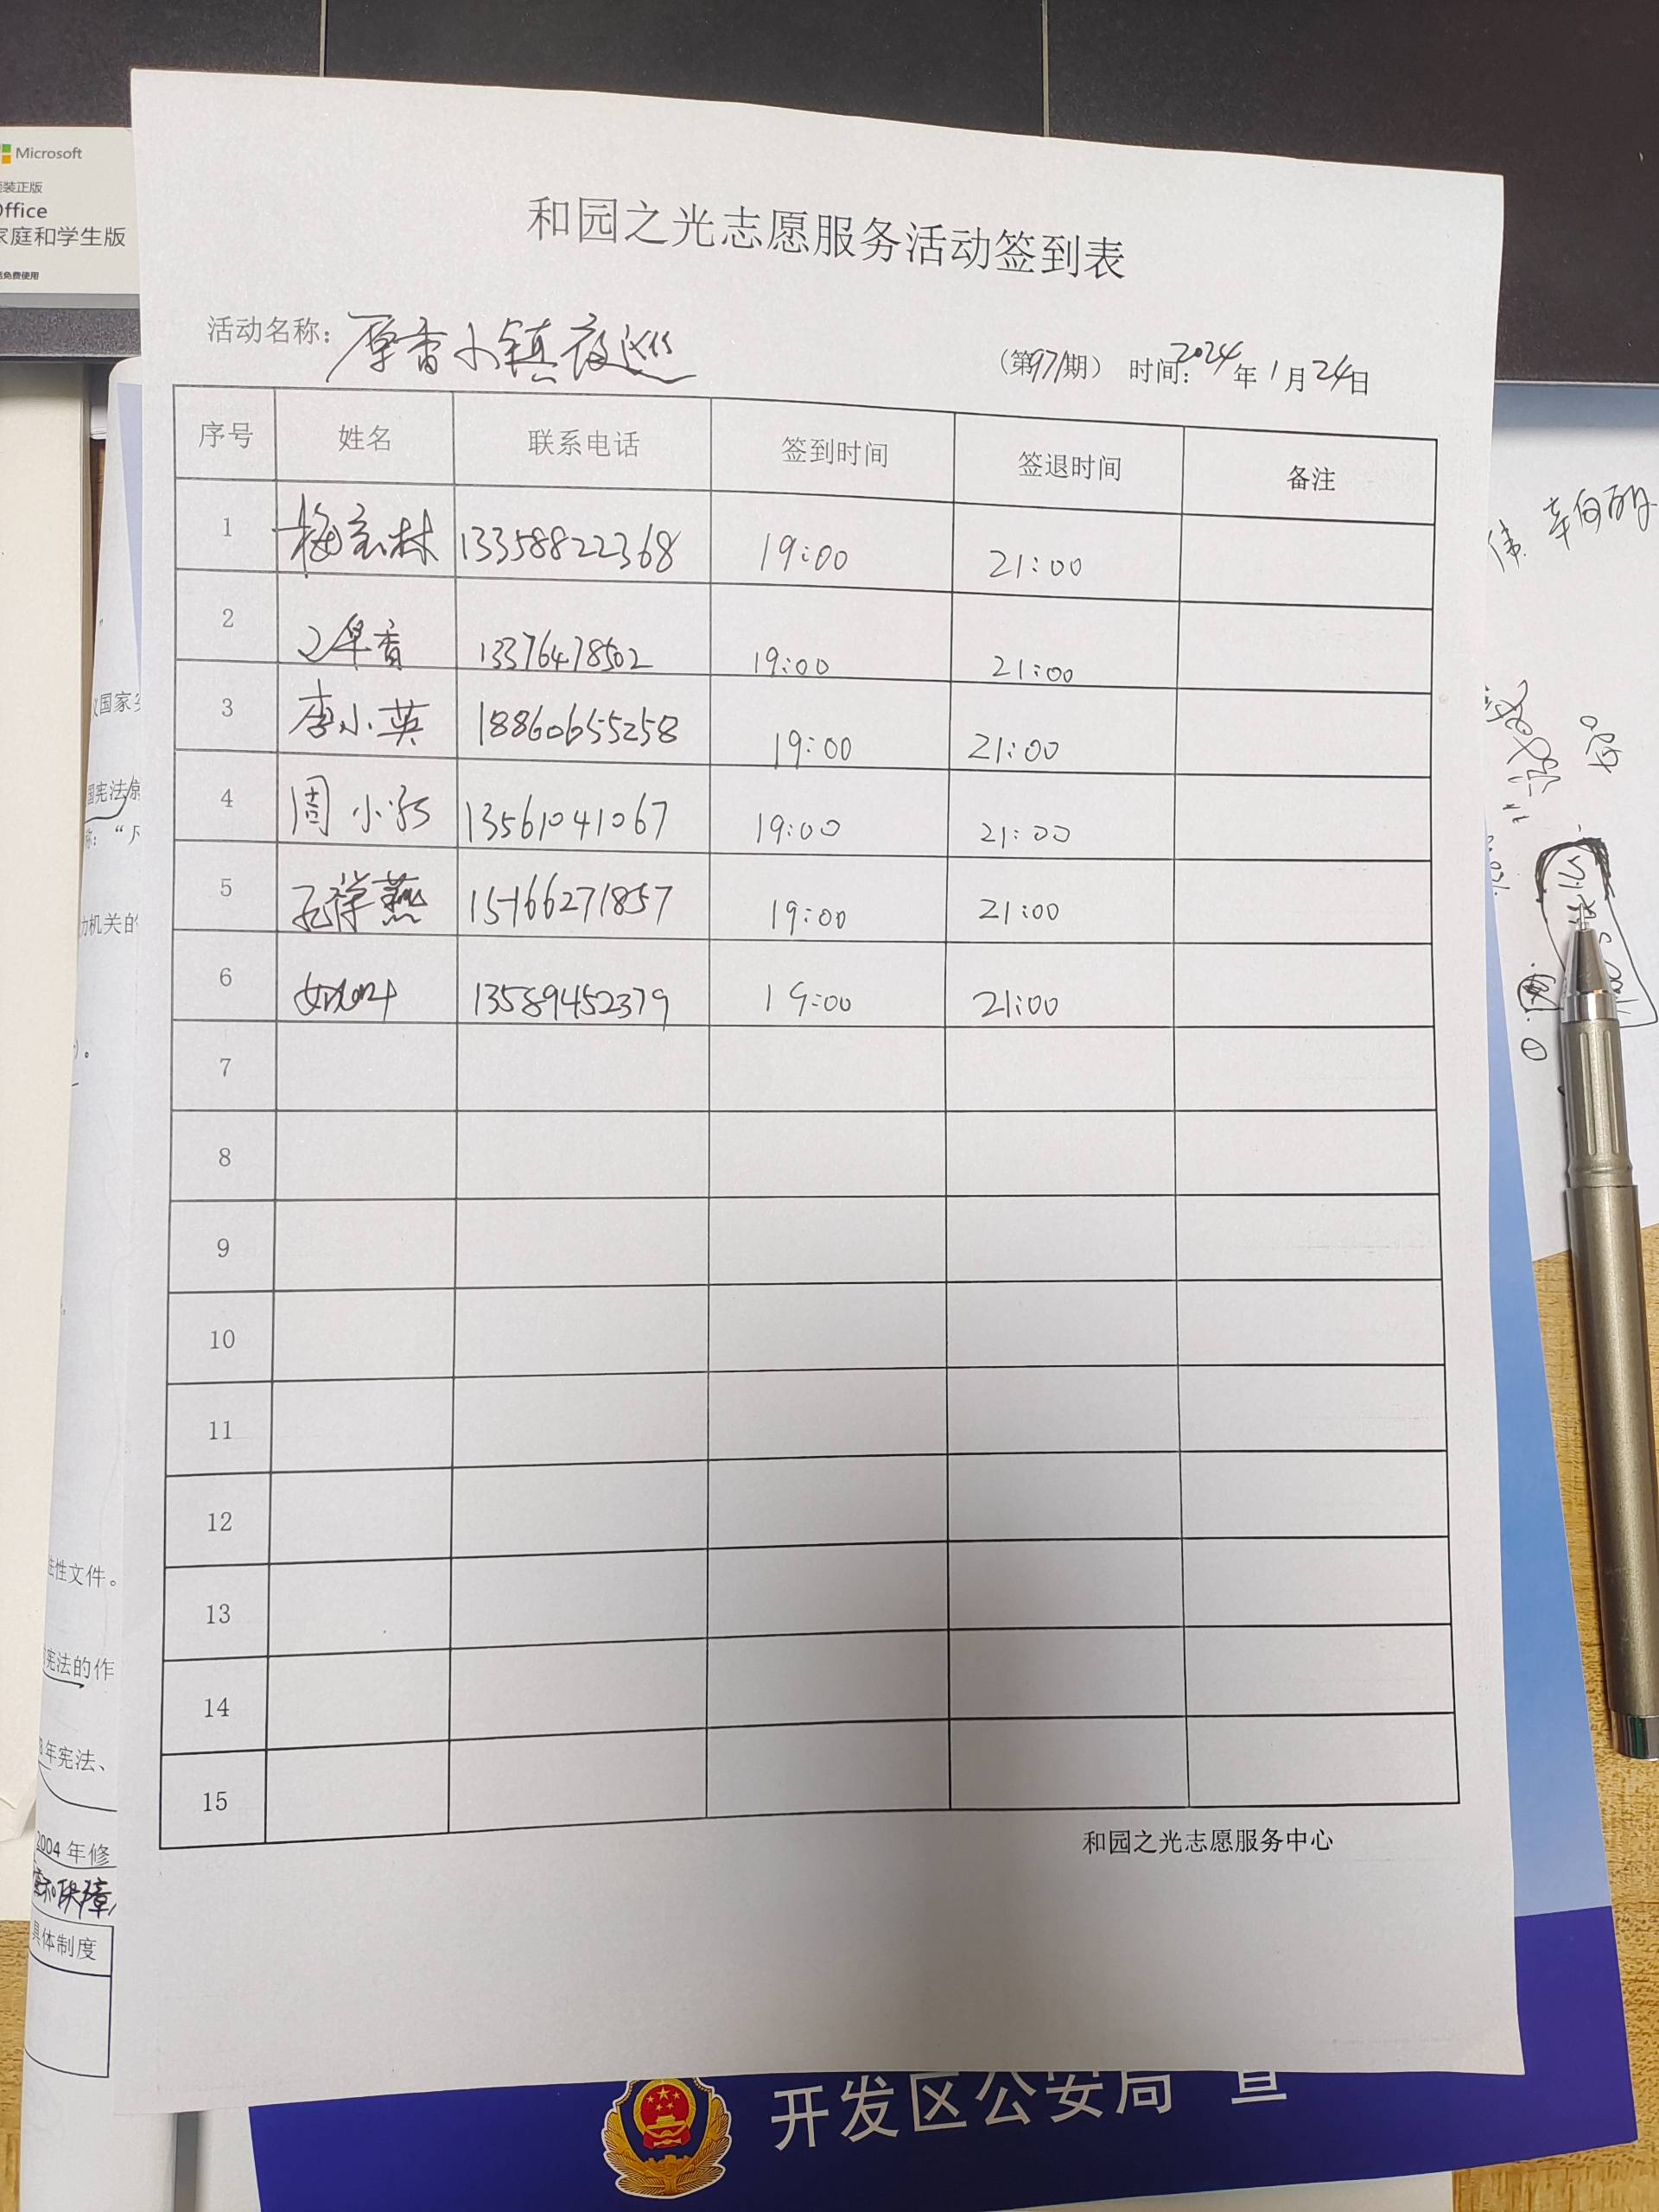 Microsoft
装正版
Office
家庭和学生版
免费使用
和园之光志愿服务活动签到表
活动名称：原香小镇夜巡
（第971期） 时间：2024年1月24日
序号 姓名 联系电话 签到时间 签退时间 备注
1 林 13358822368 19:00 21:00
2 香 13376478502 19:00 21:00
3 李小英 18860655258 19:00 21:00
4 周小 13561041067 19:00 21:00
5 祥燕 15166271857 19:00 21:00
6 13589452379 19:00 21:00
7
8
9
10
11
12
13
14
15
和园之光志愿服务中心
国家
国宪法
称：“
力机关的
性文件。
宪法的作
年宪法、
2004年修
具体制度
伟 辛向
开发区公安局 宣